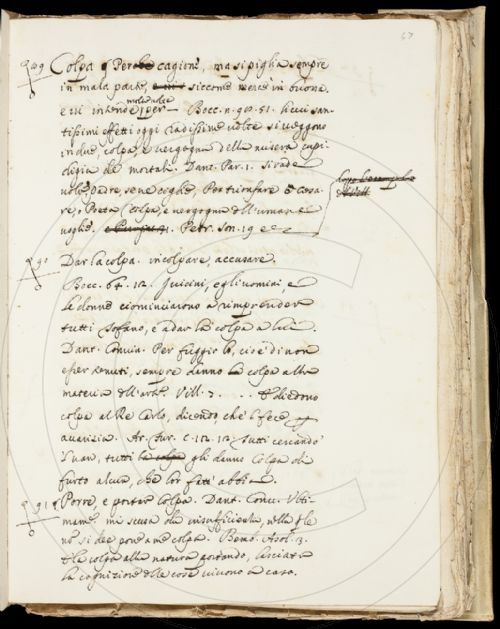 67
Colpa p Perche cagione, ma si piglia sempre
in mala parte, siccome merce in buona
e vi intende per Bocc. n. 98. 51. li cui san-
tissimi effetti oggi radissime volte si veggono
in due, colpa, e vergogna della misera cupi-
digia de mortali. Dant. Par. 1. Si rade
volte, Padre, se ne coglie, Per trionfare o Cesa-
re, o Poeta Colpa, e vergogna dell'umane
voglie. Petr. Son. 19
Dar la colpa. incolpare, accusare.
Bocc. 64. 12. I vicini, e gli uomini, e
le donne cominciarono a riprender
tutti Tofano, e a dar la colpa a lui.
Dant. Convin. Per fuggir lo, cioè di non
esser tenuti, sempre danno la colpa alla
materia dell'arte. Vill. 7. E diedono
colpa al Re Carlo, dicendo, che 'l fece p
avarizia. Ar. Fur. C. 12. 12. Tutti cercando
'l van, tutti gli danno Colpa di
furto alcun, che lor fatt' abbia.
Porre, e portar colpa. Dant. Conv. Ulti-
mame. mi scusa di insufficienza, nella q̃le
no si dee pondane colpa. Bemb. Asol. 13.
E la colpa alla natura portando, lasciata
la cognizione delle cose vivono a caso.